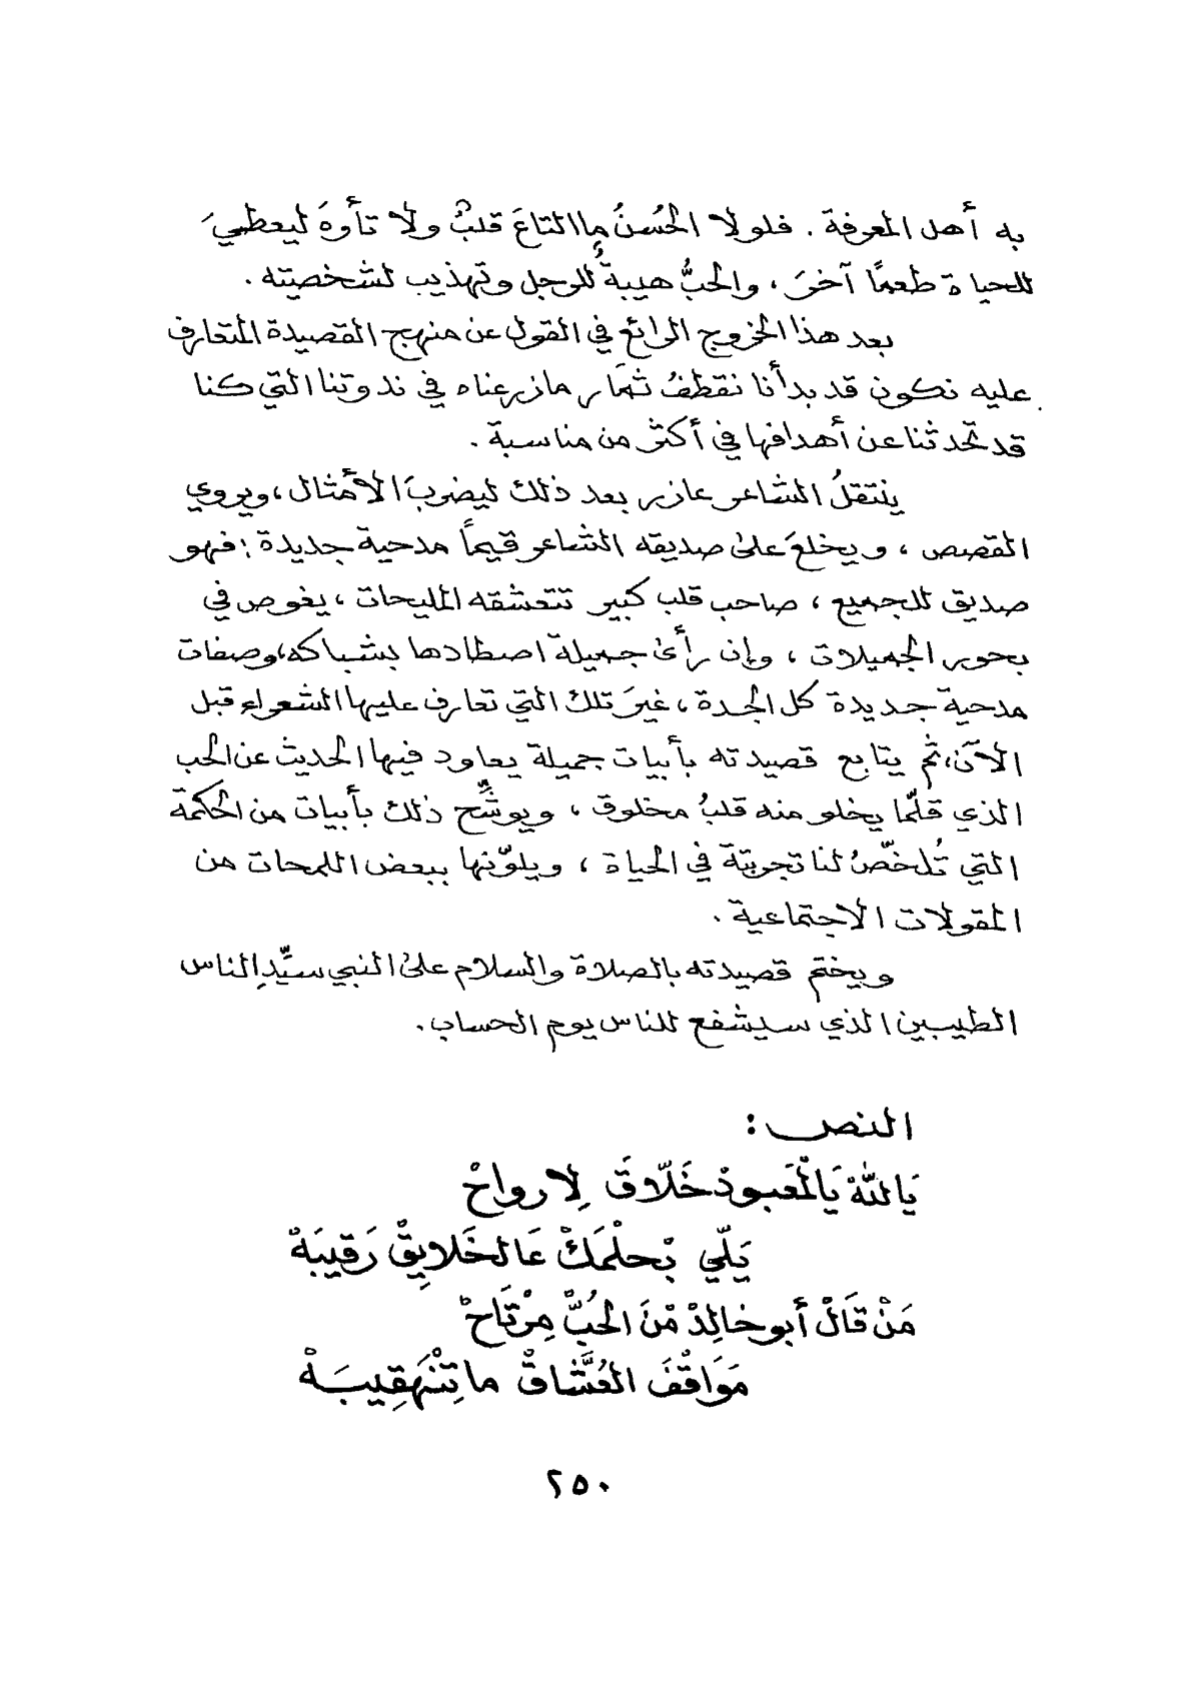 به أهل المعرفة . فلولا الحُسنُ ما التاعَ قلبٌ ولا تأوهَ ليعطيَ
للحياة طعمًا آخرَ ، والحبُّ هيبةٌ للرجل وتهذيب لشخصيته .
بعد هذا الخروج الرائع في القول عن منهج القصيدة المتعارف
عليه نكون قد بدأنا نقطفُ ثمَار ما زرعناه في ندوتنا التي كنا
قد تحدثنا عن أهدافها في أكثر من مناسبة .
ينتقلُ الشاعر عازر بعد ذلك ليضربَ الأمثال ، ويروي
القصص ، ويخلعَ على صديقه الشاعر قيماً مدحية جديدة : فهو
صديق للجميع ، صاحب قلب كبير تتعشقه المليحات ، يغوص في
بحور الجميلات ، وإن رأى جميلة اصطادها بشباكه ، وصفات
مدحية جديدة كل الجدة ، غيرَ تلك التي تعارف عليها الشعراء قبل
الآن ، ثم يتابع قصيدته بأبيات جميلة يعاود فيها الحديث عن الحب
الذي قلّما يخلو منه قلبُ مخلوق ، ويوشِّح ذلك بأبيات من الحكمة
التي تُلخّصُ لنا تجربتة في الحياة ، ويلوّنها ببعض اللمحات من
المقولات الاجتماعية .
ويختم قصيدته بالصلاة والسلام على النبي سيِّدِ الناس
الطيبين الذي سيشفع للناس يوم الحساب .
النص :
يَاللهْ يَالْمَعَبودْ خَلّاقَ لِارواحْ
يَلّي بْحلْمَكْ عَالخَلايِقْ رَقيبَهْ
مَنْ قَالْ أبو خالِدْ مْنَ الحُبّْ مِرْتَاحْ
مَوَاقْفَ العُشَّاقْ ما تِنْهَقِيبَهْ
٢٥٠